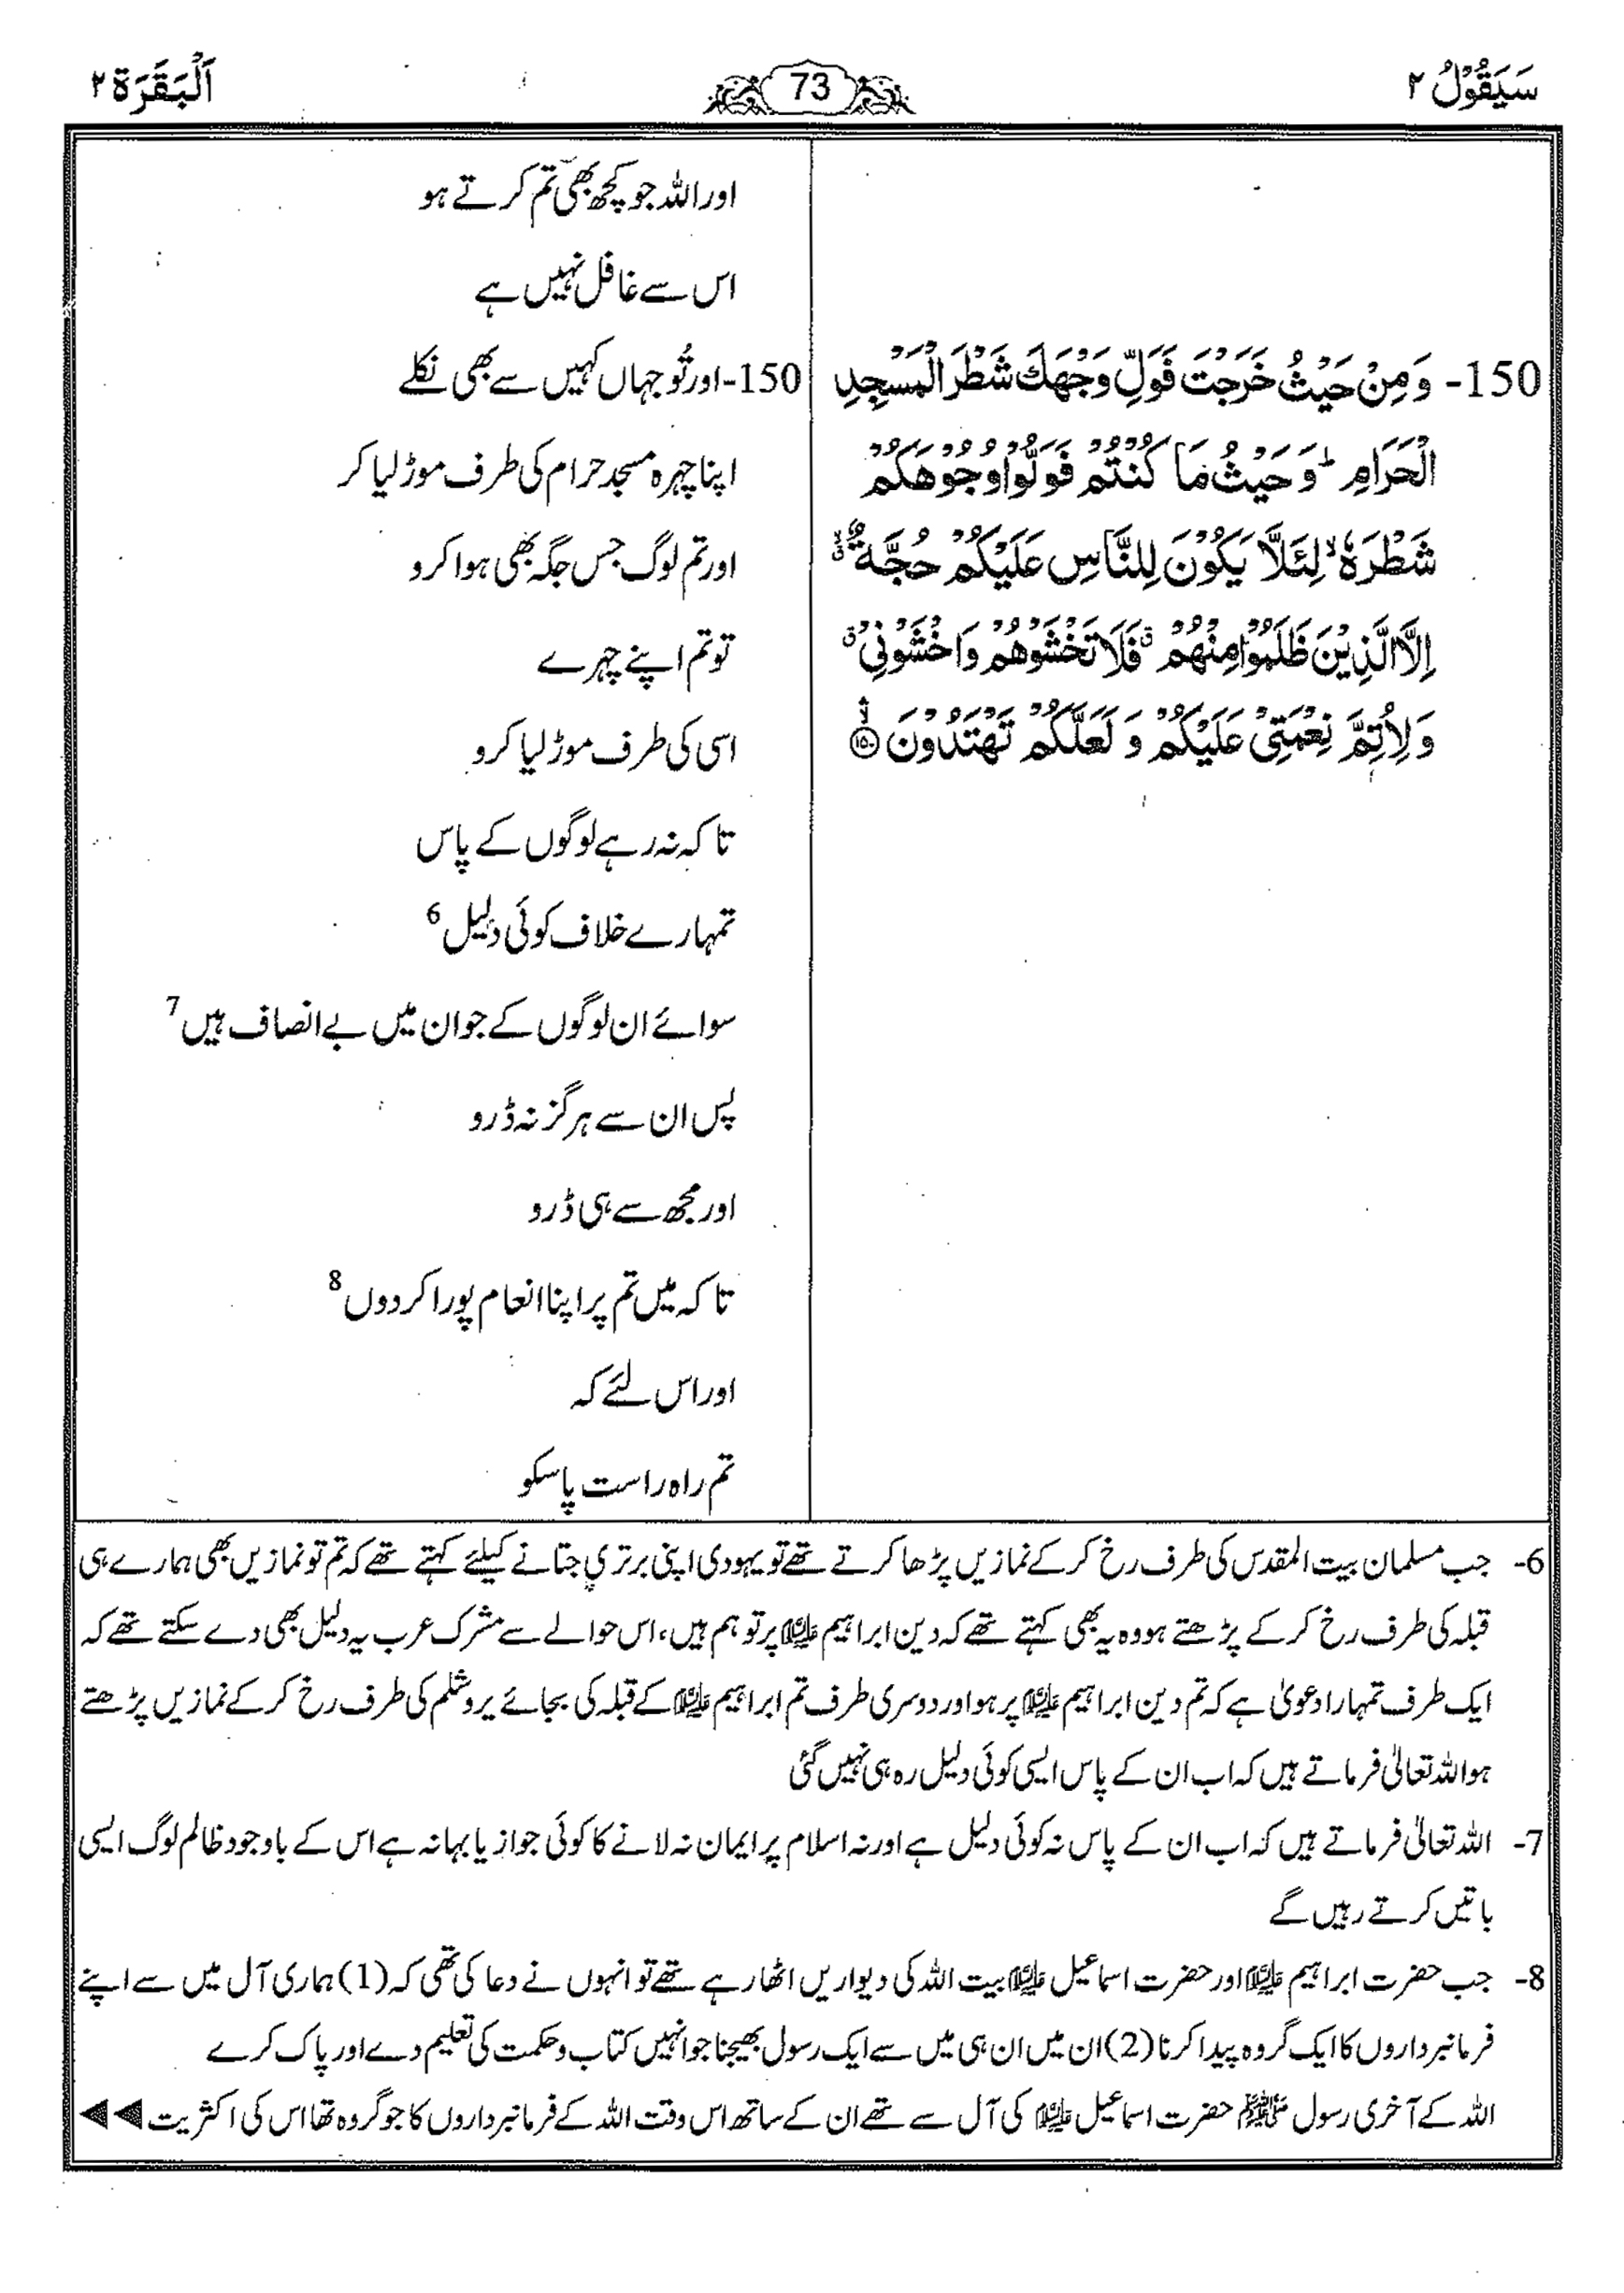 سَيَقُوْلُ ٢
73
اَلْبَقَرَة ٢
اور اللہ جو کچھ بھی تم کرتے ہو
اس سے غافل نہیں ہے
150- وَ مِنْ حَيْثُ خَرَجْتَ فَوَلِّ وَجْهَكَ شَطْرَ الْمَسْجِدِ
الْحَرَامِ ؕ وَ حَيْثُ مَا كُنْتُمْ فَوَلُّوْا وُجُوْهَكُمْ
شَطْرَهٗ ۙ لِئَلَّا يَكُوْنَ لِلنَّاسِ عَلَيْكُمْ حُجَّةٌ ۙ
اِلَّا الَّذِيْنَ ظَلَمُوْا مِنْهُمْ ۗ فَلَا تَخْشَوْهُمْ وَ اخْشَوْنِيْ ۗ
وَ لِاُتِمَّ نِعْمَتِيْ عَلَيْكُمْ وَ لَعَلَّكُمْ تَهْتَدُوْنَ ۙ ﴿١٥٠﴾
150- اور تُو جہاں کہیں سے بھی نکلے
اپنا چہرہ مسجد حرام کی طرف موڑ لیا کر
اور تم لوگ جس جگہ بھی ہوا کرو
تو تم اپنے چہرے
اسی کی طرف موڑ لیا کرو
تاکہ نہ رہے لوگوں کے پاس
تمہارے خلاف کوئی دلیل 6
سوائے ان لوگوں کے جو ان میں بے انصاف ہیں 7
پس ان سے ہرگز نہ ڈرو
اور مجھ سے ہی ڈرو
تاکہ میں تم پر اپنا انعام پورا کر دوں 8
اور اس لئے کہ
تم راہ راست پا سکو
6- جب مسلمان بیت المقدس کی طرف رخ کر کے نمازیں پڑھا کرتے تھے تو یہودی اپنی برتری جتانے کیلئے کہتے تھے کہ تم تو نمازیں بھی ہمارے ہی
قبلہ کی طرف رخ کر کے پڑھتے ہو وہ یہ بھی کہتے تھے کہ دین ابراہیم علیہ السلام پر تو ہم ہیں، اس حوالے سے مشرک عرب یہ دلیل بھی دے سکتے تھے کہ
ایک طرف تمہارا دعویٰ ہے کہ تم دین ابراہیم علیہ السلام پر ہو اور دوسری طرف تم ابراہیم علیہ السلام کے قبلہ کی بجائے یروشلم کی طرف رخ کر کے نمازیں پڑھتے
ہو اللہ تعالیٰ فرماتے ہیں کہ اب ان کے پاس ایسی کوئی دلیل رہ ہی نہیں گئی
7- اللہ تعالیٰ فرماتے ہیں کہ اب ان کے پاس نہ کوئی دلیل ہے اور نہ اسلام پر ایمان نہ لانے کا کوئی جواز یا بہانہ ہے اس کے باوجود ظالم لوگ ایسی
باتیں کرتے رہیں گے
8- جب حضرت ابراہیم علیہ السلام اور حضرت اسماعیل علیہ السلام بیت اللہ کی دیواریں اٹھا رہے تھے تو انہوں نے دعا کی تھی کہ (1) ہماری آل میں سے اپنے
فرمانبرداروں کا ایک گروہ پیدا کرنا (2) ان میں ان ہی میں سے ایک رسول بھیجنا جو انہیں کتاب و حکمت کی تعلیم دے اور پاک کرے
اللہ کے آخری رسول ﷺ حضرت اسماعیل علیہ السلام کی آل سے تھے ان کے ساتھ اس وقت اللہ کے فرمانبرداروں کا جو گروہ تھا اس کی اکثریت ◀◀